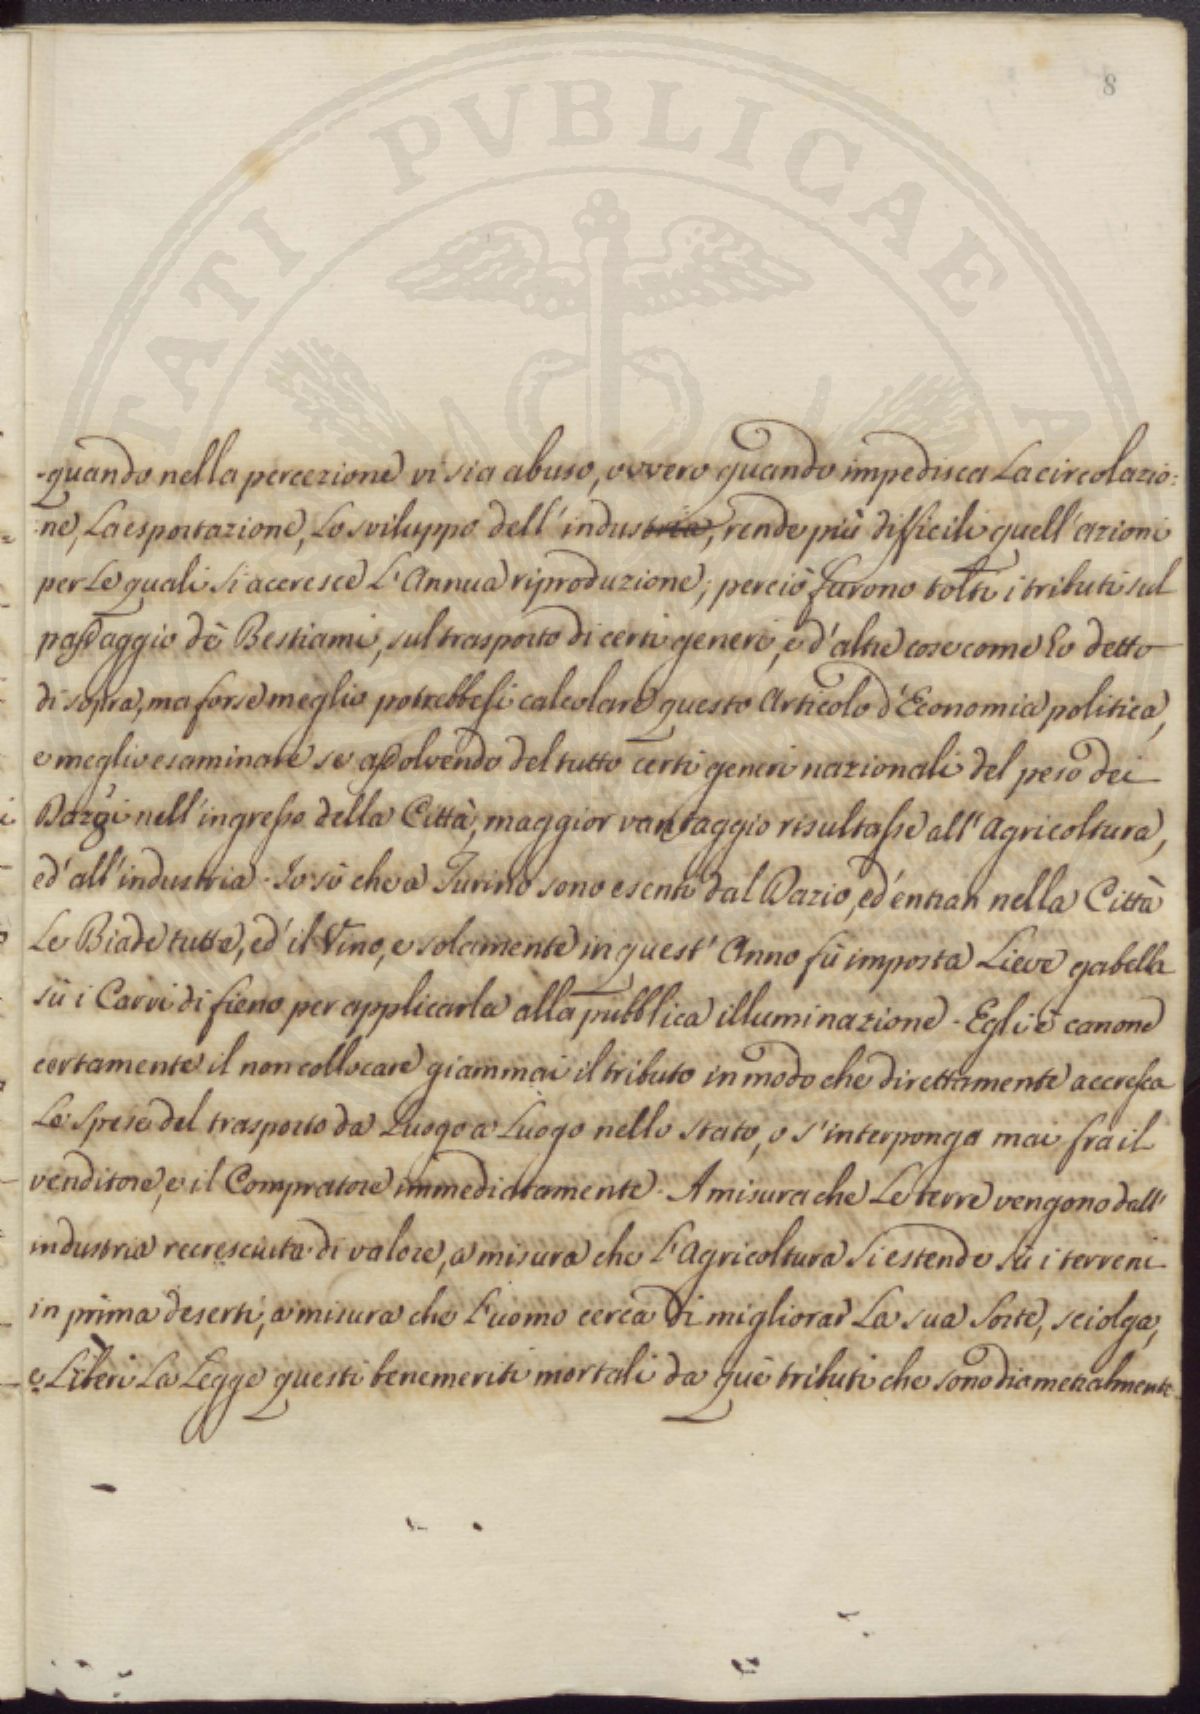 TATI PVBLICAE A
8
-quando nella percezione vi sia abuso, ovvero quando impedisca La circolazio:
:ne, La esportazione, Lo sviluppo dell' industria, rende più difficili quell' azioni
per Le quali si accresce L'Annua riproduzione; perciò furono tolti i tributi sul
passaggio dè Bestiami, sul trasporto di certi generi, e d'altre cose come ho detto
di sopra, ma forse meglio potrebbesi calcolare questo Articolo d'Economia politica,
e meglio esaminare se assolvendo del tutto certi generi nazionali del peso dei
Dazi nell'ingresso della Città, maggior vantaggio risultasse all'Agricoltura,
ed' all'industria. Io sò che a Turino sono esenti dal Dazio, ed' entran nella Città
Le Biade tutte, ed' il Vino, e solamente in quest' Anno fù imposta Lieve gabella
sù i Carri di fieno per applicarla alla pubblica illuminazione. Egli è canone
certamente il non collocare giammai il tributo in modo che direttamente accresca
Le Spese del trasporto da Luogo a Luogo nello stato, o s'interponga mai frà il
venditore, e il Compratore immediatamente. A misura che Le terre vengono dall'
industria recresciuta di valore, a misura che L'Agricoltura si estende sù i terreni
in prima deserti, a misura che L'uomo cerca di migliorar La sua Sorte, sciolga,
e Liberi La Legge questi benemeriti mortali da què tributi che sono diametralmente